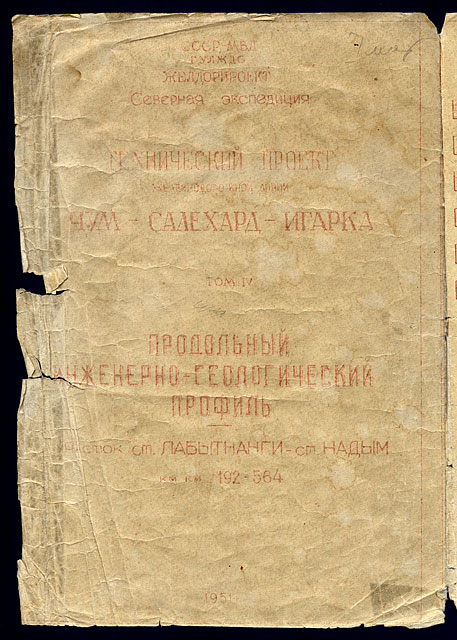 СССР МВД
ГУЛЖДС
ЖЕЛДОРПРОЕКТ
СЕВЕРНАЯ ЭКСПЕДИЦИЯ
ТЕХНИЧЕСКИЙ ПРОЕКТ
ЖЕЛЕЗНОДОРОЖНОЙ ЛИНИИ
ЧУМ - САЛЕХАРД - ИГАРКА
ТОМ IV
ПРОДОЛЬНЫЙ
ИНЖЕНЕРНО-ГЕОЛОГИЧЕСКИЙ
ПРОФИЛЬ
УЧАСТОК СТ. ЛАБЫТНАНГИ - СТ. НАДЫМ
КМ КМ 192-564
1951